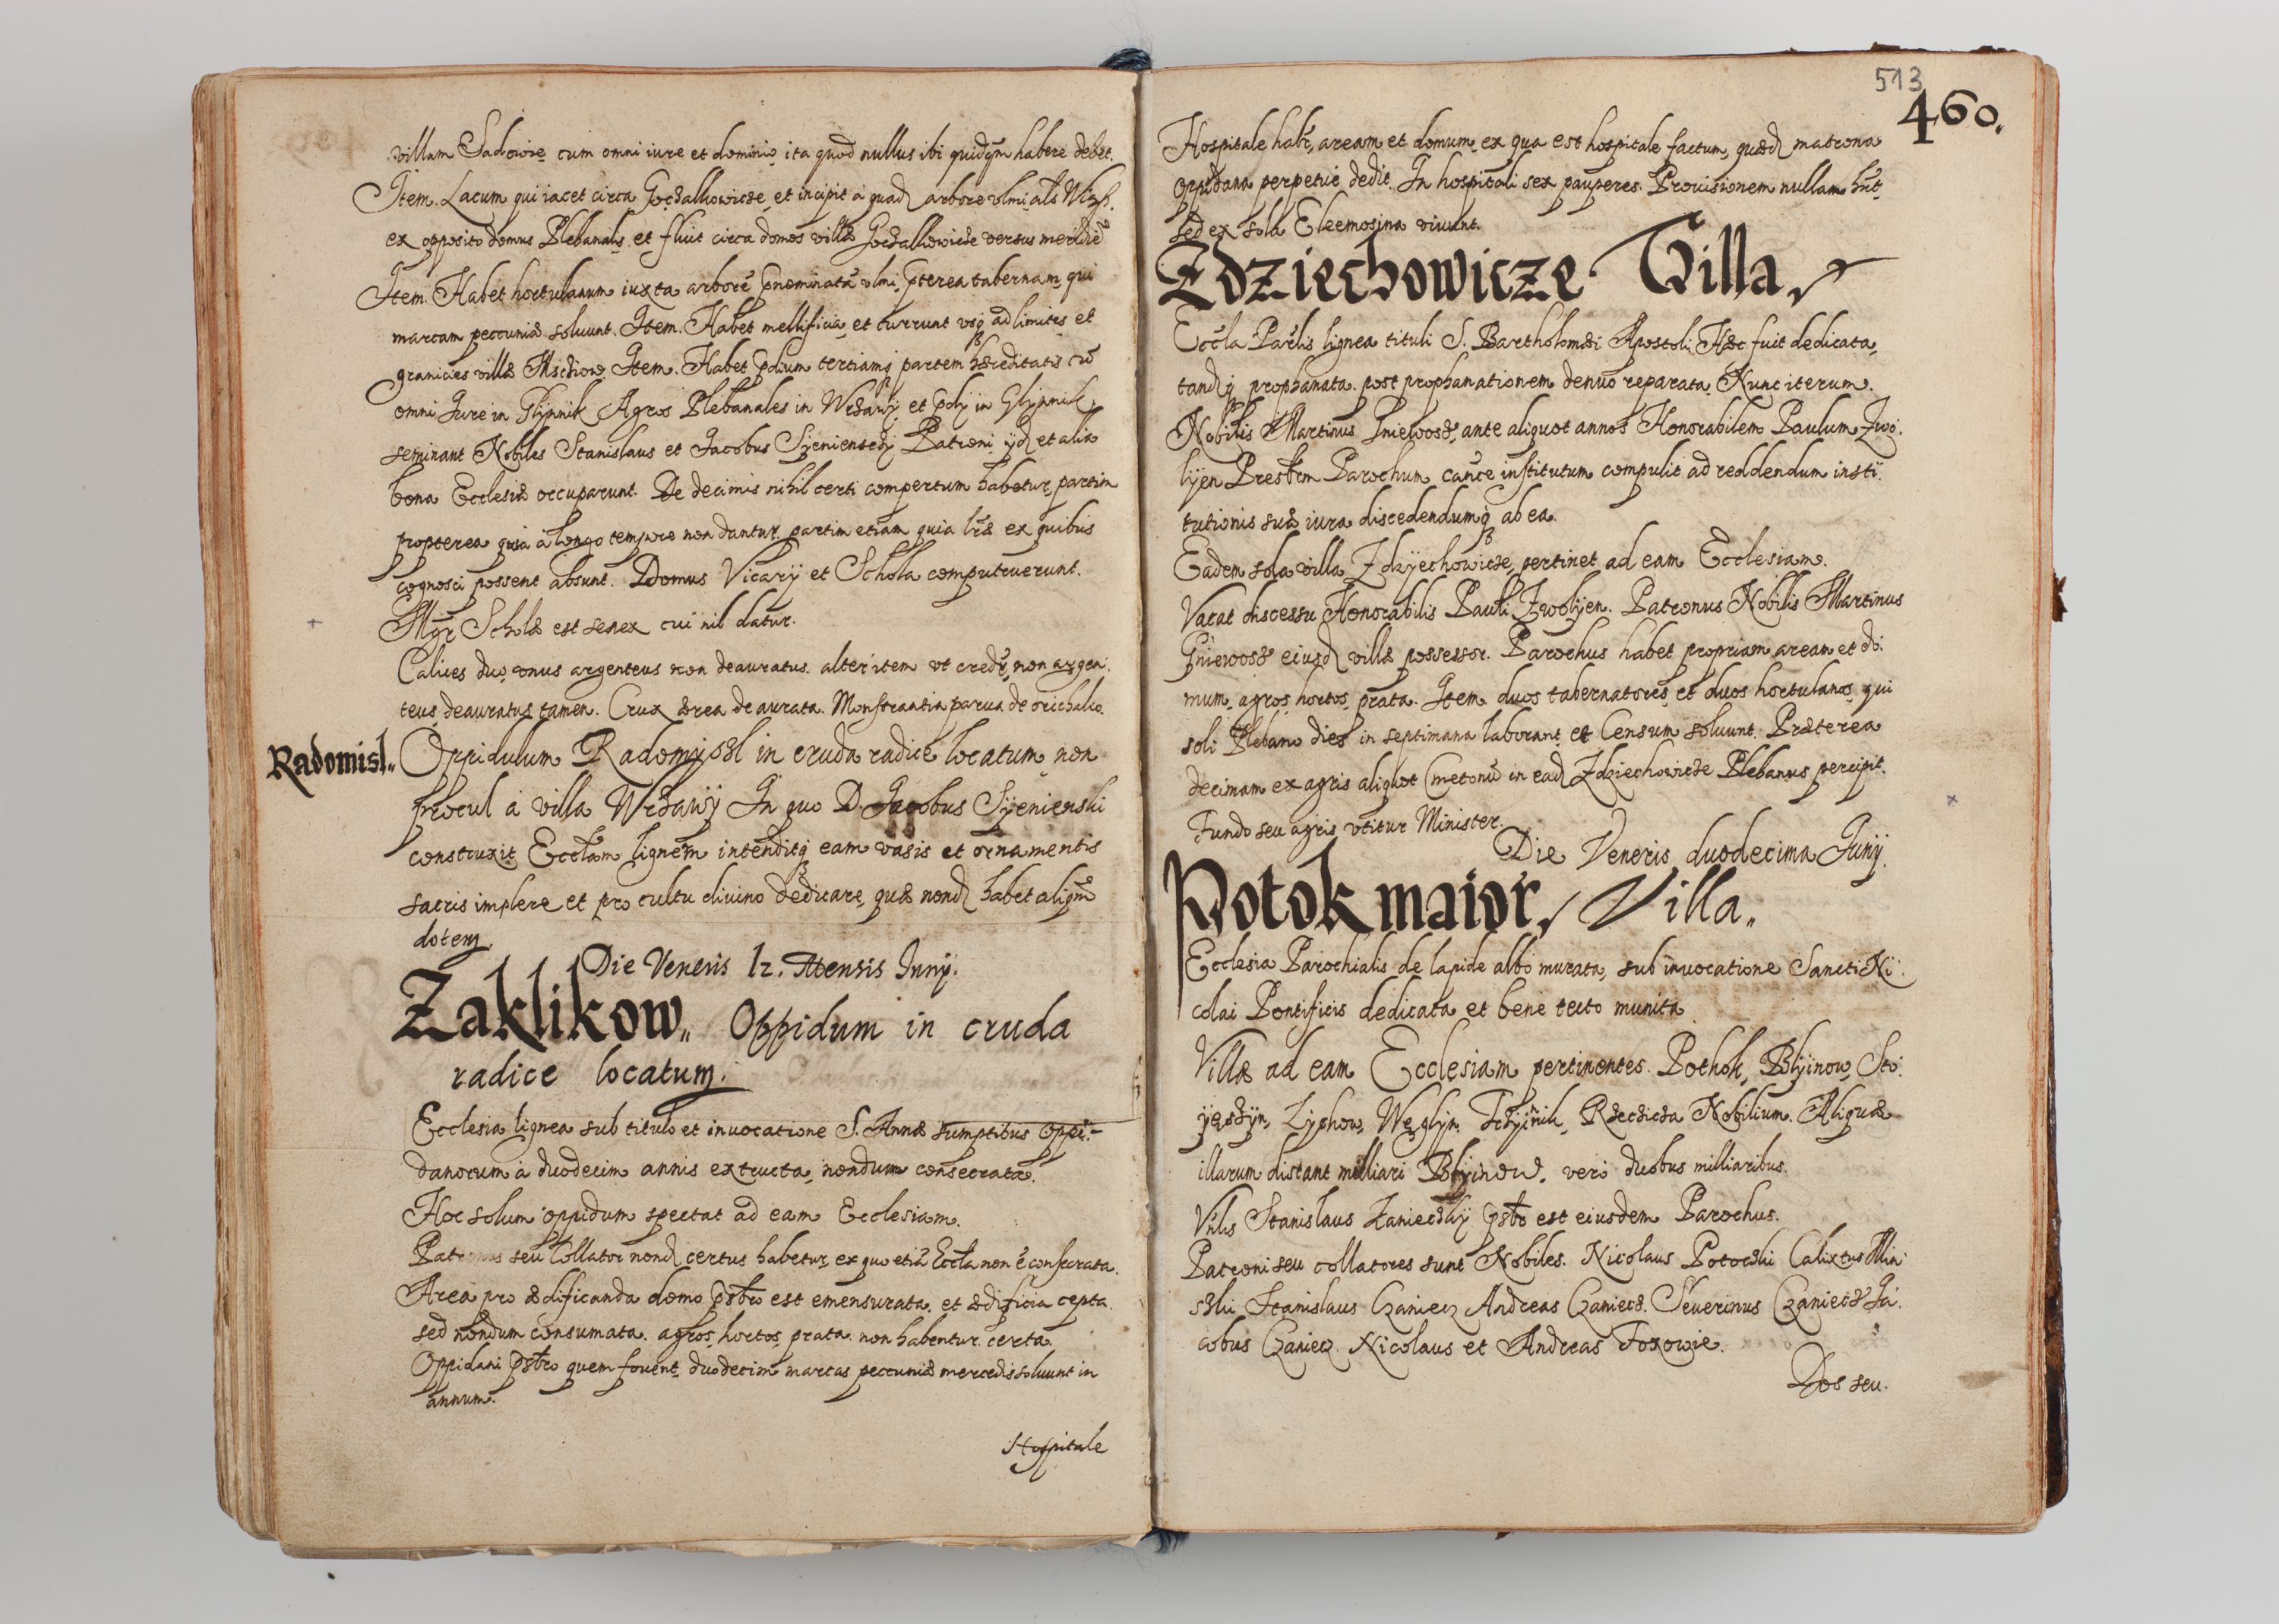 villam Sadowie cum omni iure et dominio ita quod nullus ibi quidq̃m habere debet.
Item. Lacum qui iacet circa Goczalkowicze, et incipit à quad arbore vlmi als Wiąz.
ex opposito domus Plebanalis et fluit circa domos villæ Goczalkowicze versus meridiẽ
Item. Habet hortulanum iuxta arborẽ p̃nominatã vlmi, p̃terea tabernam qui
marcam peccuniæ soluunt. Item. Habet mellificia, et currunt vsq ad limites et
granicies villæ Mschiow. Item. Habet p̃dium tertiamq partem hæreditatis cũ
omni Iure in Glynnik Agros Plebanales in Wrzawÿ et p̃dÿ in Glynnik
seminant Nobiles Stanislaus et Jacobus Sÿenienscÿ Patroni ÿd et alia
bona Ecclesiæ occuparunt. De decimis nihil certi compertum habetur, partim
propterea quia à longo tempore non dantur. partim etiam quia lr̃æ ex quibus
cognosci possent absunt. Domus Vicarÿ et Schola computruerunt.
Mgr̃ Scholæ est senex cui nil datur.
Calices duo, vnus argenteus non deauratus. alter item vt credr̃, non argen:
teus, deauratus tamen. Crux ærea deaurata. Monstrantia parua de orichalco.
Radomisl.
Oppidulum Radomÿsl in cruda radice locatum non
procul à villa Wrzawÿ In quo D. Jacobus Sÿenienski
construxit Eccl̃am ligneam intenditq eam vasis et ornamentis
sacris implere et pro cultu diuino dedicare, quæ nond habet aliqm̃
dotem.
Die Veneris 12. Mensis Junÿ.
Zaklikow. Oppidum in cruda
radice locatum.
Ecclesia lignea sub titulo et inuocatione S. Annæ sumptibus oppi:
danorum à duodecim annis extructa, nondum consecrata.
Hoc solum oppidum spectat ad eam Ecclesiam.
Patronus seu Collator nond certus habetur, ex quo etiã Eccl̃a non ẽ consecrata.
Area pro ædificanda domo p̃sbr̃o est emensurata. et ædificia cepta
sed nondum consumata. agros, hortos, prata non habentur certa.
Oppidani p̃sbr̃o quem fouent, duodecim marcas peccuniæ mercedis soluunt in
annum.
Hospitale
513
460.
Hospitale habr̃, aream et domum, ex qua est hospitale factum, quæd matrona
oppidana perpetuè dedit. In hospitali sex pauperes. Prouisionem nullam hñt
sed ex sola Eleemosina viuunt.
Zdziechowicze Villa
Eccl̃a Parlis lignea tituli S. Bartholomæi Apostoli Hæc fuit dedicata,
tandq prophanata. post prophanationem denuò reparata. Nunc iterum.
Nobilis Martinus Gniewosz, ante aliquot annos Honorabilem Paulum Zwo:
lÿen Presbr̃m Parochum cañce institutum compulit ad reddendum insti:
tutionis suæ iura discedendumq ab ea.
Eadem sola villa Zdzÿechowicze, pertinet ad eam Ecclesiam.
Vacat discessu Honorabilis Pauli Zwolÿen. Patronus Nobilis Martinus
Gniewosz eiusd villæ possessor. Parochus habet propriam aream et do:
mum, agros, hortos, prata. Item duos tabernatores, et duos hortulanos, qui
soli Plebano dies in septimana laborant et Censum soluunt. Præterea
decimam ex agris aliquot Cmetonũ in ead Zdziechowicze Plebanus percipit.
Fundo seu agris vtitur Minister.
Die Veneris duodecima Junÿ.
Potok maior, Villa.
Ecclesia Parochialis de lapide albo murata, sub inuocatione Sancti Ni:
colai Pontificis dedicata et bene tecto munita
Villæ ad eam Ecclesiam pertinentes. Pothok, Blÿinow, Sto:
ÿeszÿn, Lÿchow, Węglÿn, Trzÿinik, Rzeczicza Nobilium. Aliquæ
illarum distant milliari Blÿinow. verò duobus milliaribus.
Vñlis Stanislaus Kanieczkÿ p̃sbr̃ est eiusdem Parochus.
Patroni seu collatores sunt Nobiles. Nicolaus Potoczki Calixtus Min:
szki Stanislaus Czaniecz Andreas Czaniecz. Seuerinus Czaniecz Ja:
cobus Czaniecz Nicolaus et Andreas Foxowie.
Dos seu.